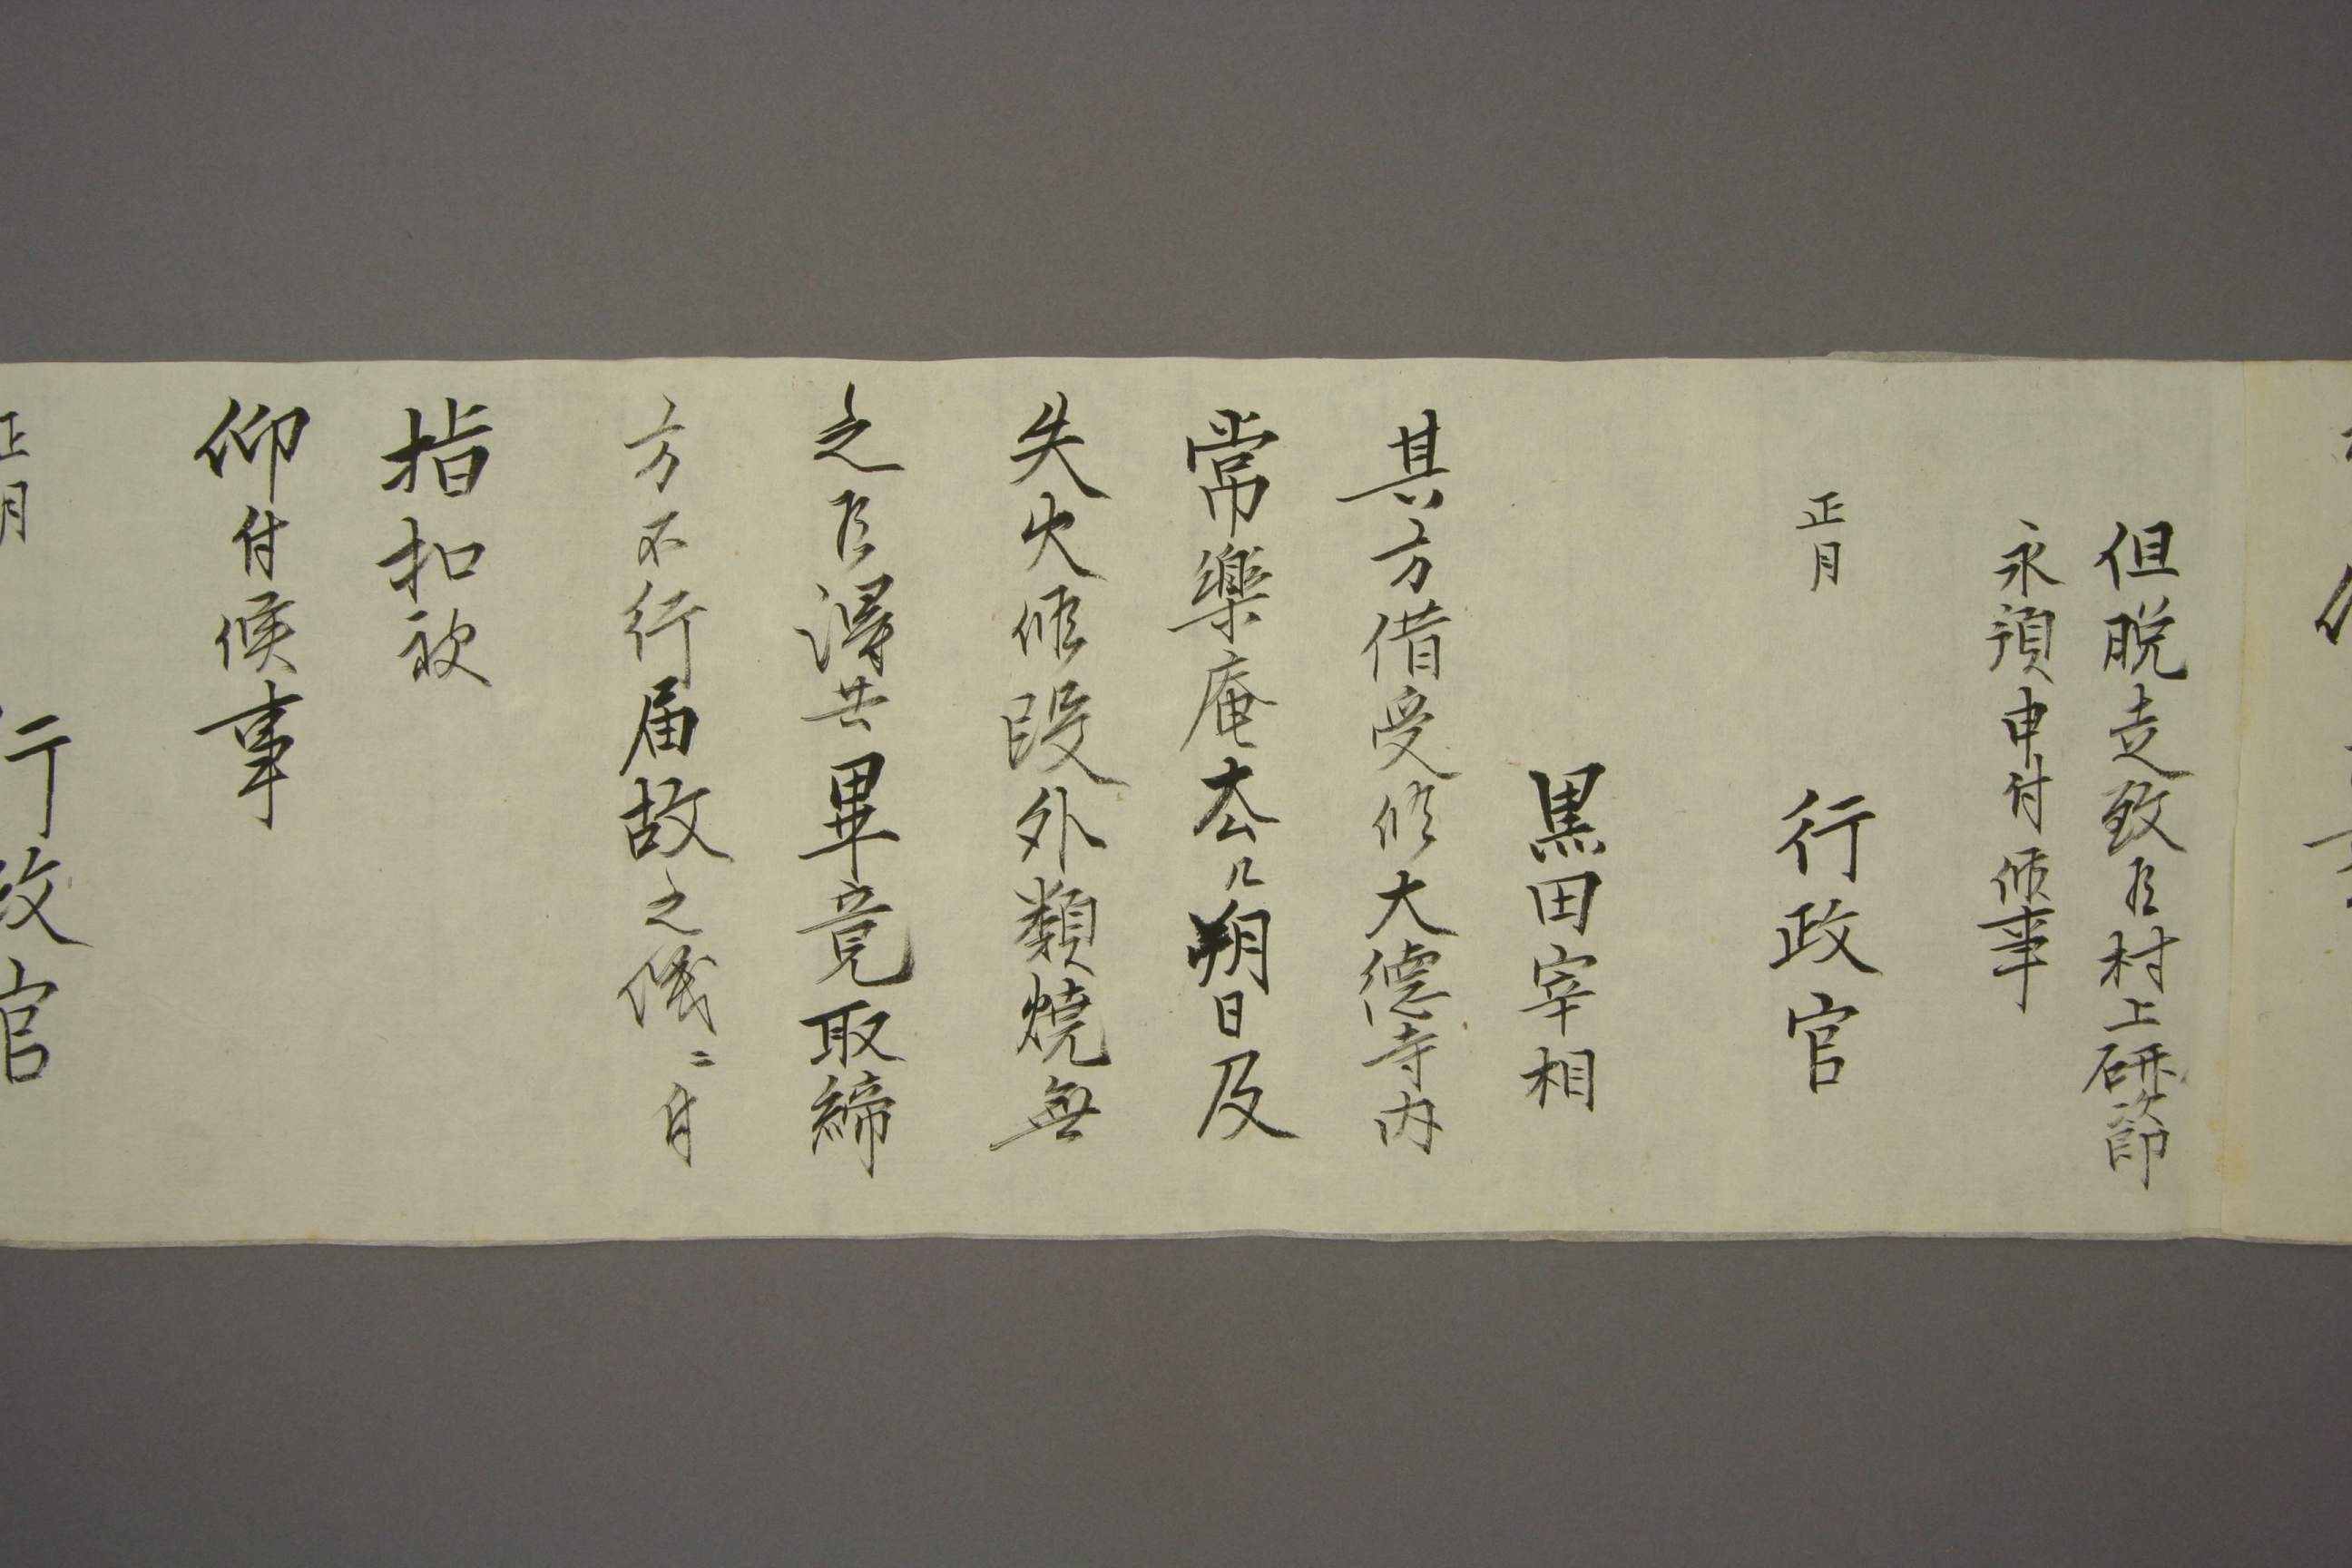 但脱走致候村上研莭
永預申付候事
正月 行政官
黒田宰相
其方借受候大德寺内
常樂庵去ル朔日及
失火候段外類燒無
之候得共畢竟取締
方不行届故之儀ニ付
指扣被
仰付候事
正月 行政官